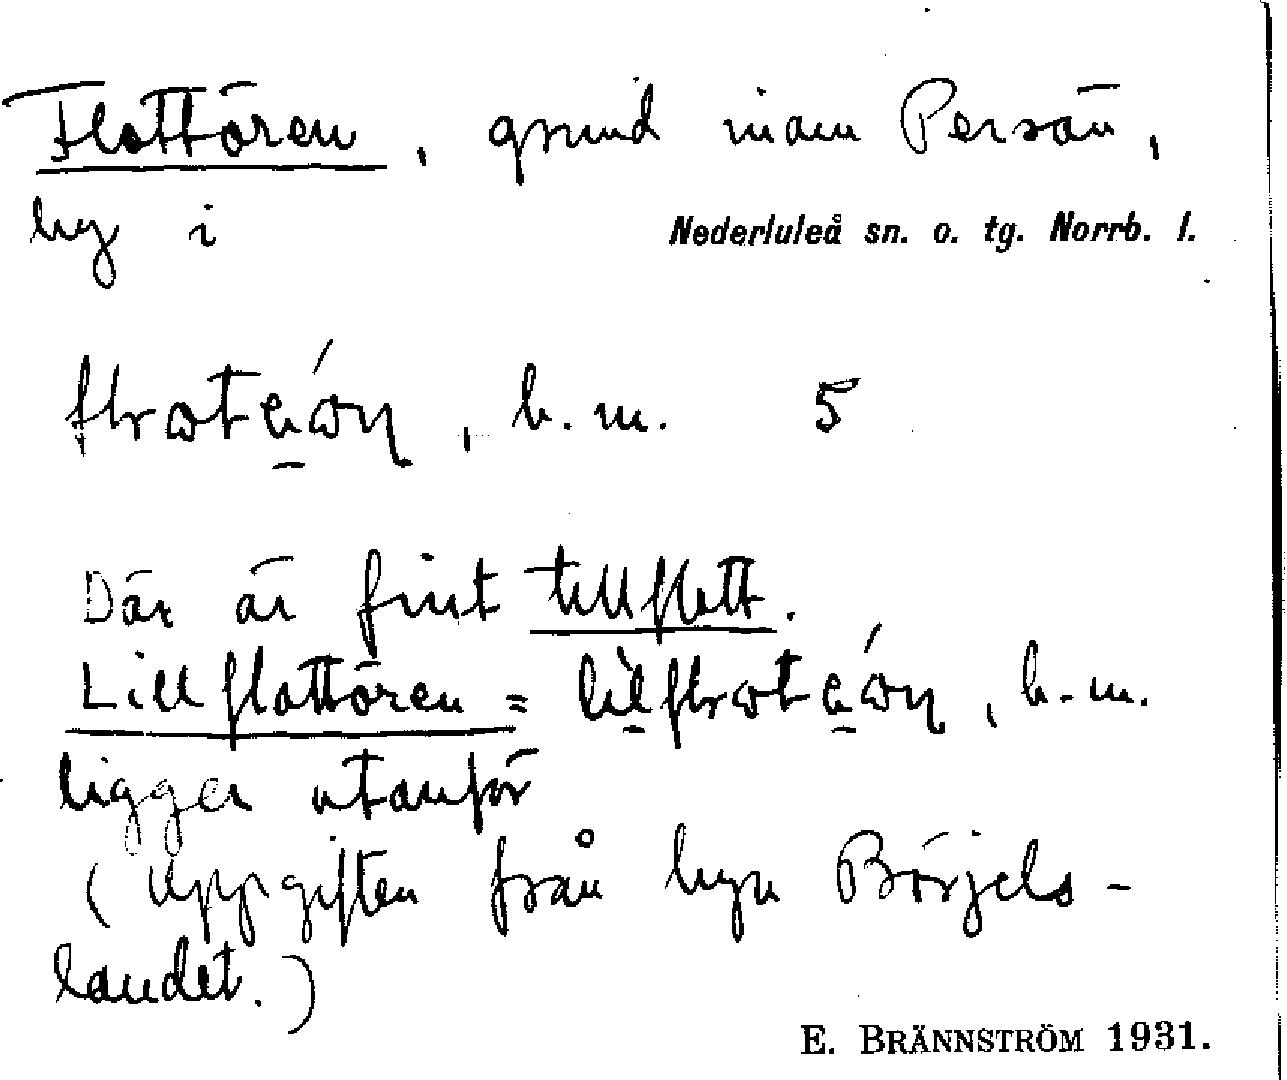 Flottören, grund inom Persön,
by i Nederluleå sn. o. tg. Norrb. l.
b. m. 5
Där är fint tillflott.
Lillflottören = b. m.
ligger utanför
(Uppgiften från byn Börjels-
landet.)
E. BRÄNNSTRÖM 1931.